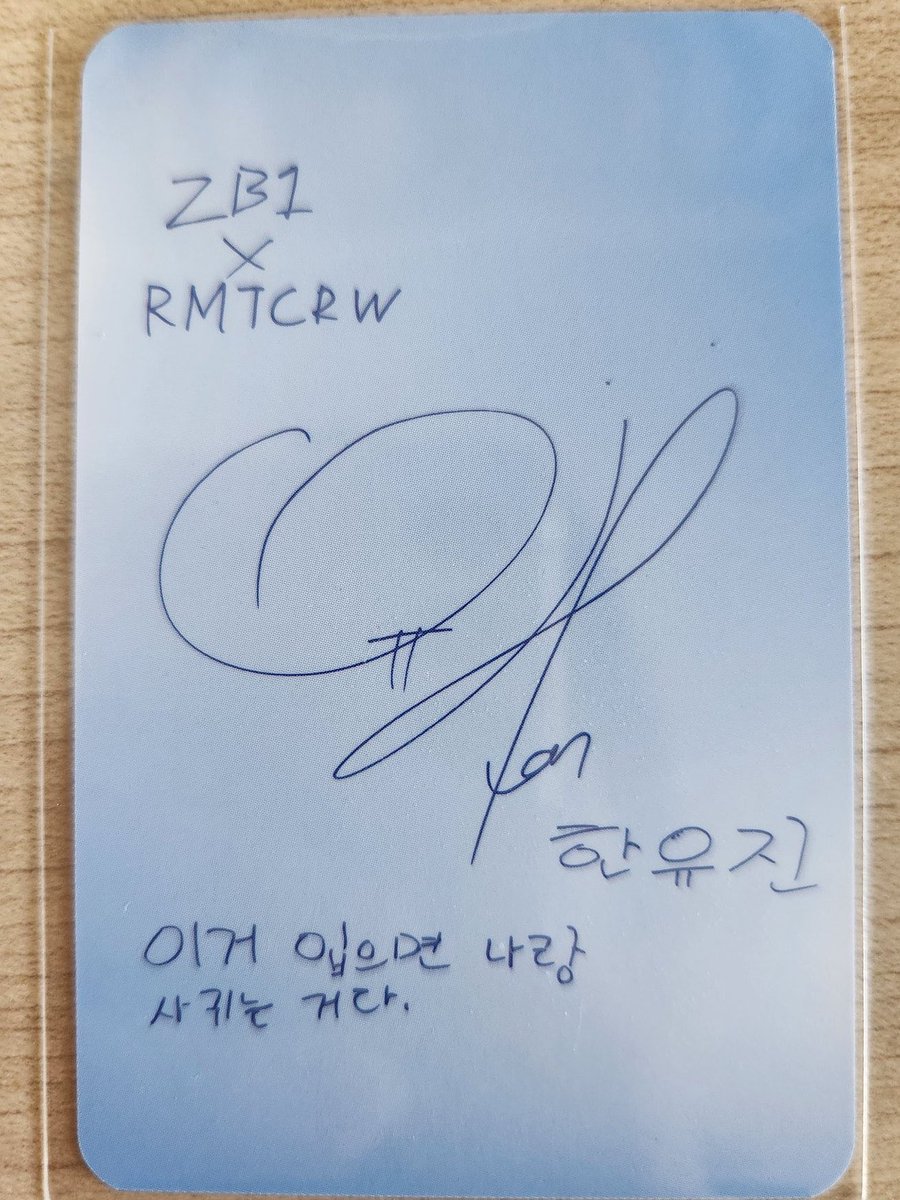 ZB1
X
RMTCRW
한유진
이거 입으면 나랑
사귀는 거다.